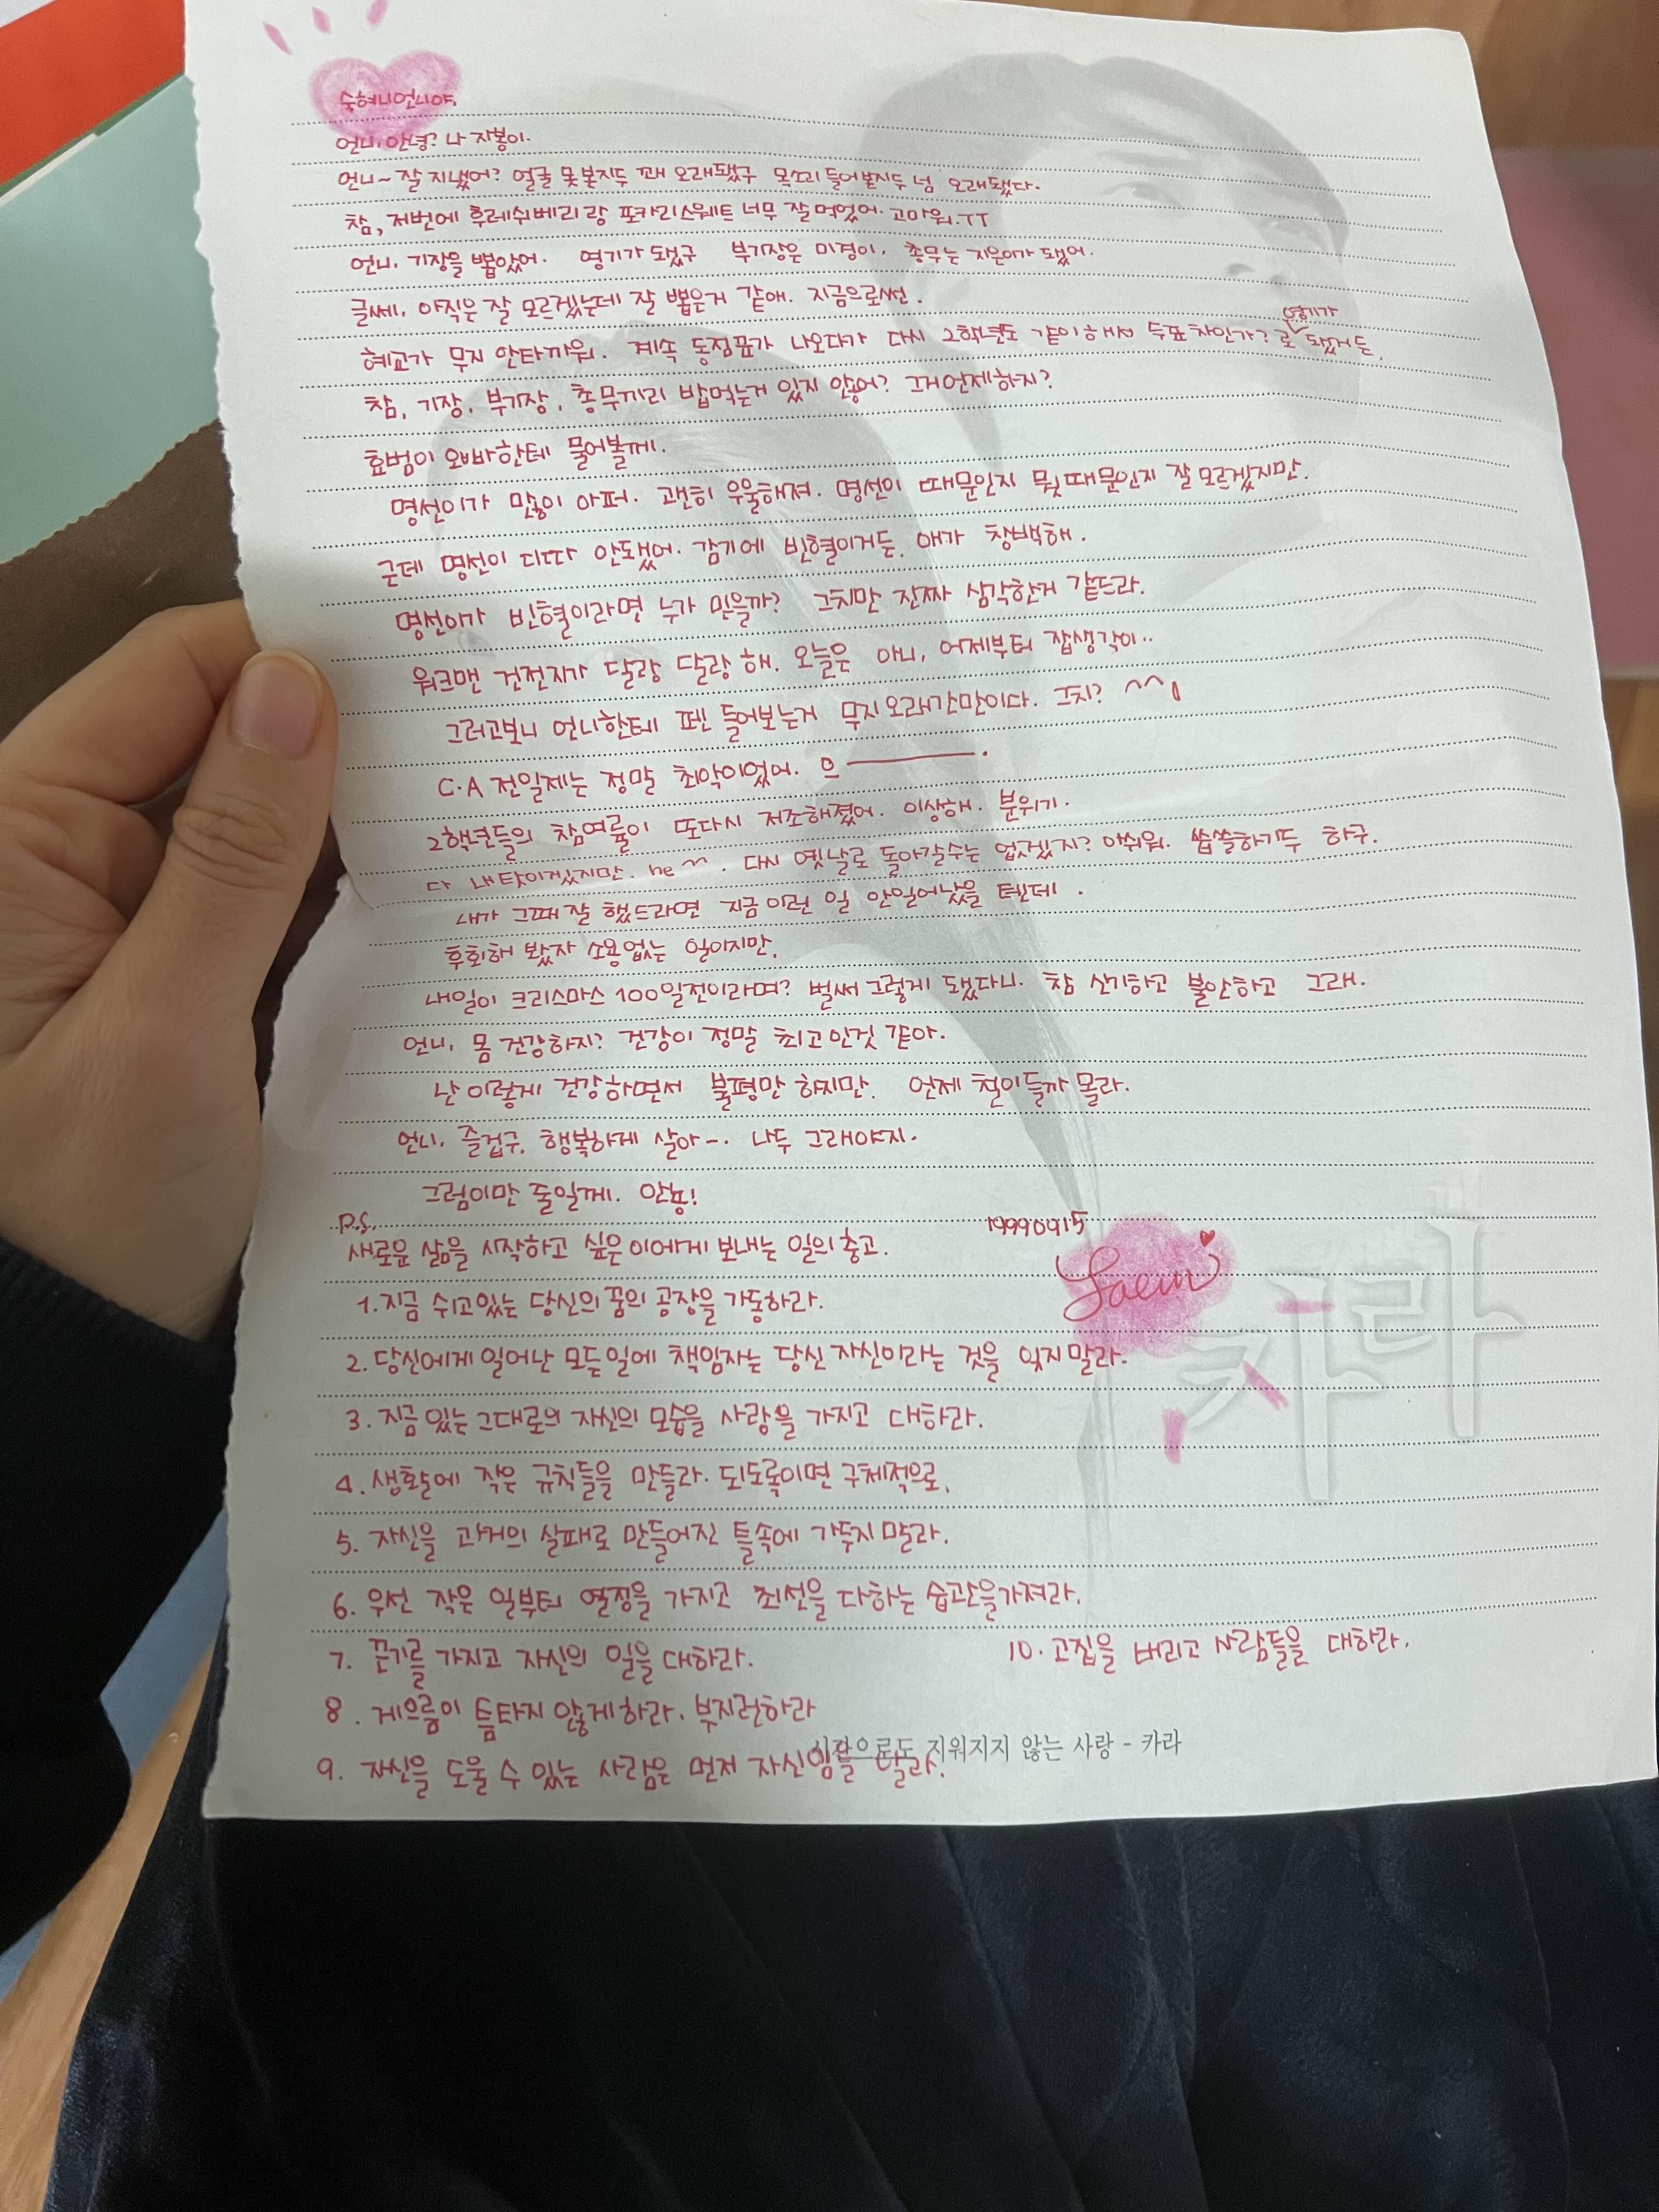 숙혜니언니야.
언니, 안녕? 나 지봉이.
언니~ 잘 지냈어? 얼굴 못본지두 꽤 오래됐구 목소리 들어본지두 넘 오래됐다.
참, 저번에 후레쉬베리랑 포카리스웨트 너무 잘 먹었어. 고마워.ㅜㅜ
언니, 기장을 뽑았어. 영기가 됐구 부기장은 미경이, 총무는 지은이가 됐어.
글쎄, 아직은 잘 모르겠는데 잘 뽑은거 같애. 지금으로썬.
혜교가 무지 안타까워. 계속 동점표가 나오다가 다시 2학년도 같이해서 두표 차인가?로 영기가 됐거든.
참, 기장, 부기장, 총무끼리 밥먹는거 있지 않어? 그거언제하지?
효범이 오빠한테 물어볼께.
명선이가 많이 아퍼. 괜히 우울해져. 명선이 때문인지 뭣때문인지 잘 모르겠지만.
근데 명선이 디따 안됐어. 감기에 빈혈이거든. 애가 창백해.
명선이가 빈혈이라면 누가 믿을까? 그치만 진짜 심각한거 같드라.
워크맨 건전지가 달랑 달랑 해. 오늘은 아니, 어제부터 잡생각이..
그러고보니 언니한테 펜 들어보는거 무지 오래간만이다. 그치? ^^
C.A 전일제는 정말 최악이었어. 으ㅡ.
2학년들의 참여률이 또다시 저조해졌어. 이상해. 분위기.
다 내 탓이겠지만. he^^. 다시 옛날로 돌아갈수는 없겠지? 아쉬워. 씁쓸하기두 하구.
내가 그때 잘 했드라면 지금 이런 일 안일어났을 텐데.
후회해 봤자 소용없는 일이지만.
내일이 크리스마스 100일전이라며? 벌써 그렇게 됐다니. 참 신기하고 불안하고 그래.
언니, 몸 건강하지? 건강이 정말 최고인것 같아.
난 이렇게 건강하면서 불평만 하지만. 언제 철이들까 몰라.
언니, 즐겁구, 행복하게 살아~. 나두 그래야지.
그럼이만 줄일께. 안뇽!
P.S. 19990915
새로운 삶을 시작하고 싶은 이에게 보내는 일의 충고.
Saem
1. 지금 쉬고있는 당신의 꿈의 공장을 가동하라.
2. 당신에게 일어난 모든일에 책임자는 당신 자신이라는 것을 잊지말라.
3. 지금 있는 그대로의 자신의 모습을 사랑을 가지고 대하라.
4. 생활에 작은 규칙들을 만들라. 되도록이면 구체적으로.
5. 자신을 과거의 실패로 만들어진 틀속에 가두지 말라.
6. 우선 작은 일부터 열정을 가지고 최선을 다하는 습관을가져라.
7. 끈기를 가지고 자신의 일을 대하라.
8. 게으름이 틈타지 않게하라. 부지런하라
9. 자신을 도울 수 있는 사람은 먼저 자신임을 알라.
10. 고집을 버리고 사람들을 대하라.
카라
시간으로도 지워지지 않는 사랑 - 카라